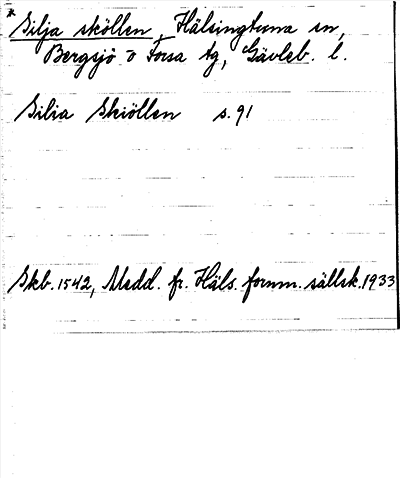 * Silja sköllen, Hälsingtuna sn,
Bergsjö o Forsa tg, Gävleb. l.
Silia Skiöllen s. 91
Skb. 1542, Medd. fr. Häls. fornm. sällsk. 1933